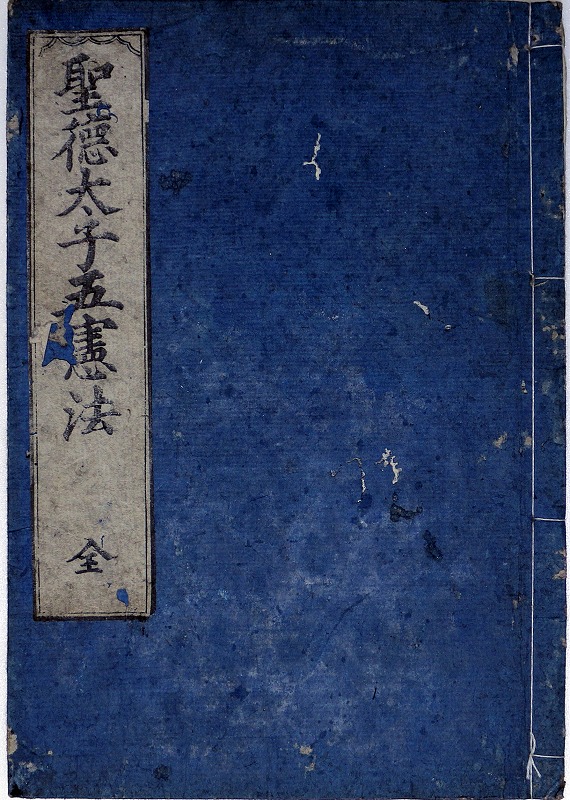 聖德太子五憲法
全